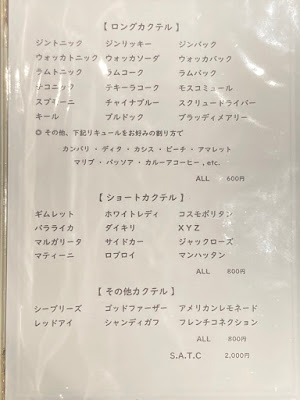 【 ロングカクテル 】
ジントニック ジンリッキー ジンバック
ウォッカトニック ウォッカソーダ ウォッカバック
ラムトニック ラムコーク ラムバック
テコニック テキーラコーク モスコミュール
スプモーニ チャイナブルー スクリュードライバー
キール ブルドック ブラッディメアリー
◎ その他、下記リキュールをお好みの割り方で
カンパリ ・ ディタ ・ カシス ・ ピーチ ・ アマレット
マリブ ・ パッソア ・ カルーアコーヒー , etc.
ALL 600円
【 ショートカクテル 】
ギムレット ホワイトレディ コスモポリタン
バラライカ ダイキリ XYZ
マルガリータ サイドカー ジャックローズ
マティーニ ロブロイ マンハッタン
ALL 800円
【 その他カクテル 】
シーブリーズ ゴッドファーザー アメリカンレモネード
レッドアイ シャンディガフ フレンチコネクション
ALL 800円
S.A.T.C 2,000円